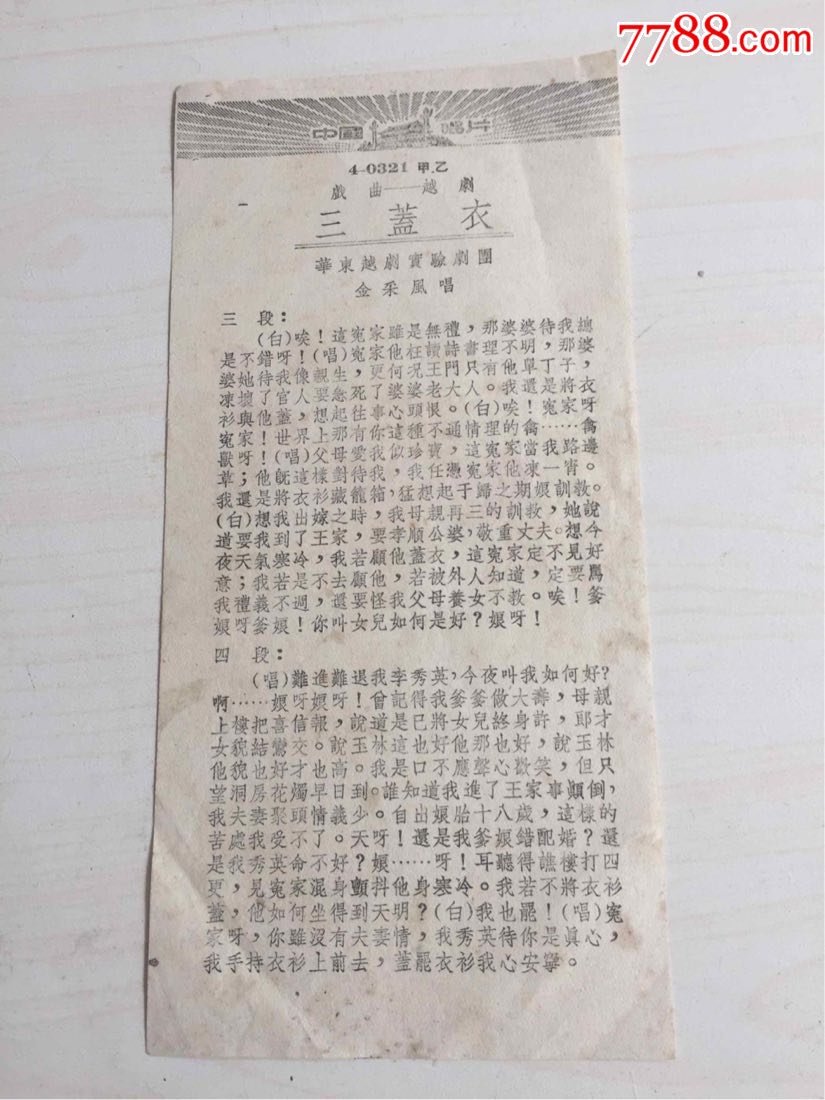 7788.com
中國 唱片
4-0321 甲.乙
戲曲——越劇
三蓋衣
華東越劇實驗劇團
金采風唱
三 段：
(白)唉！這寃家雖是無禮，那婆婆待我總
是不錯呀！(唱)寃家他枉讀詩書理不明，那婆
婆她待我像親生，更何況王門只有他單丁子，
凍壞了官人要急死了婆老大人。我還是將衣
衫與他蓋，想起往事心頭恨。(白)唉！寃家呀
寃家！世界上那有你這種不通情理的禽……禽
獸呀！(唱)父母愛我似珍寶，這寃家當我路邊
草；他旣這樣對待我，我任憑寃家他凍一宵。
我還是將衣衫藏籠箱，猛想起于歸之期娘訓教。
(白)想我出嫁之時，我母親再三的訓教，她說
道要到了王家，要孝順公婆，敬重丈夫。想今
夜天氣寒冷，我若顧他蓋衣，這寃家定不見好
意；我若是不去顧他，若被外人知道，定要罵
我禮義不週，還要怪我父母養女不教。唉！爹
娘呀爹娘！你叫女兒如何是好？娘呀！
四 段：
(唱)難進難退我李秀英，今夜叫我如何好？
啊……娘呀娘呀！曾記得我爹爹做大壽，母親
上樓把喜信報，說道是已將女兒終身許，郎才
女貌結鸞交。說玉林這也好他那也好，說玉林
他貌也好才也高。我是口不應聲心歡笑，但只
望洞房花燭早日到。誰知道我進了王家事顛倒，
我夫妻聚頭情義少。自出娘胎十八歲，這樣的
苦處我受不了。天呀！還是我爹娘錯配婚？還
是我秀英命不好？娘……呀！耳聽得譙樓打四
更，見寃家混身顫抖他身寒冷。我若不將衣衫
蓋，他如何坐得到天明？(白)我也罷！(唱)寃
家呀，你雖沒有夫妻情，我秀英待你是眞心，
我手持衣衫上前去，蓋罷衣衫我心安寧。